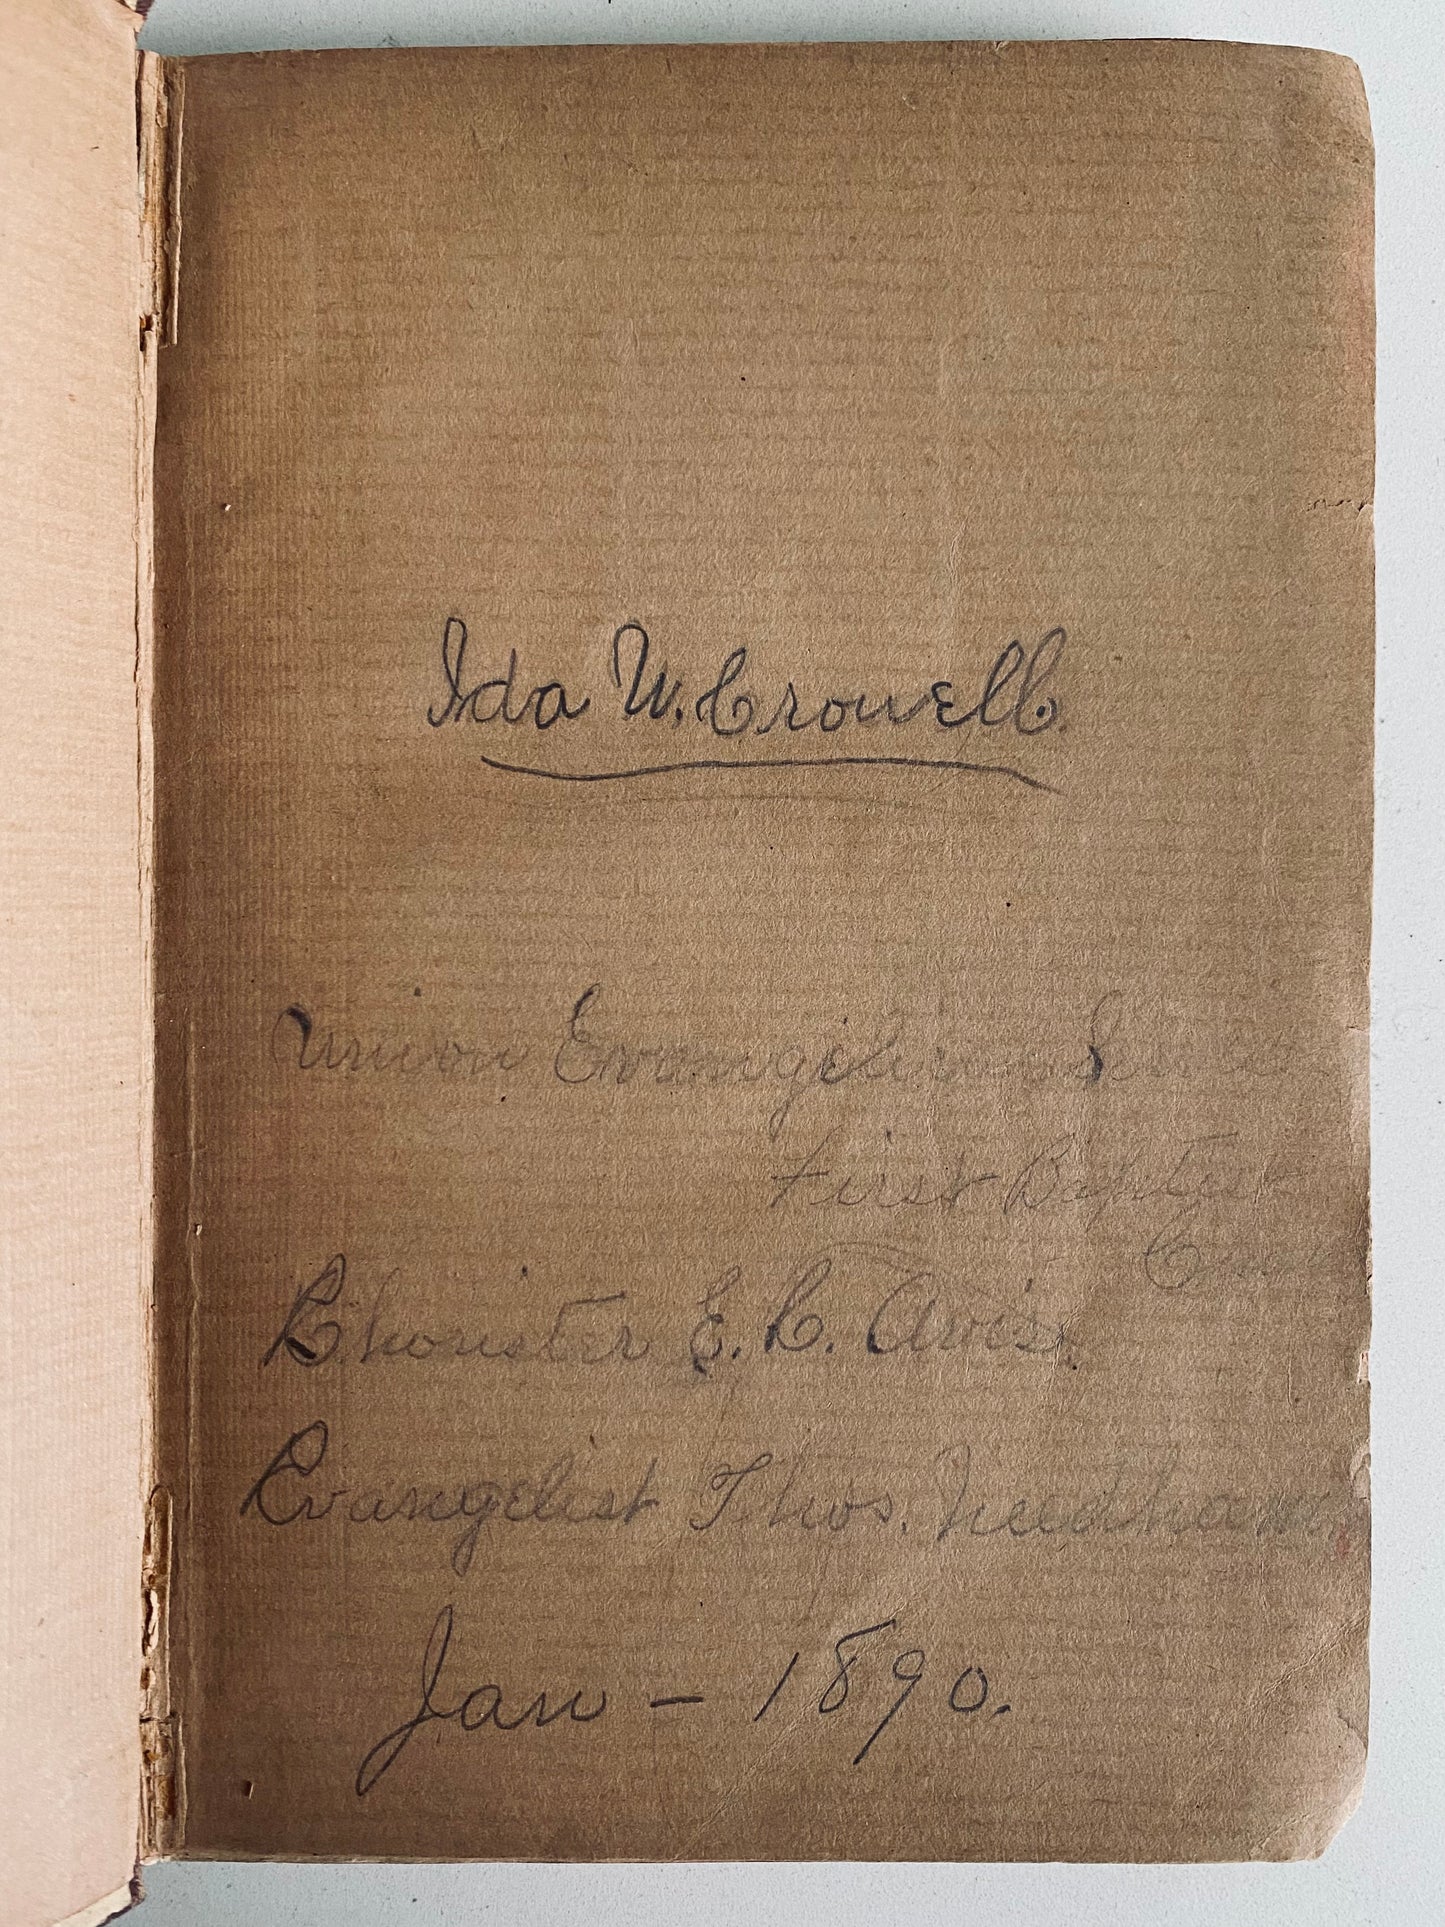 Ida W. Crowell.
Union Evangelical
First Baptist
Chorister E. C. Avis.
Evangelist Thos. Needham.
Jan - 1890.